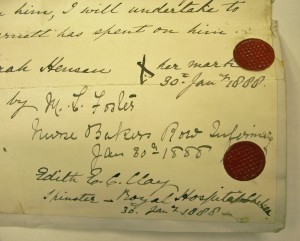 on him, I will undertake to
rnett has spent on him
rah Henson X her mark
30th Jany 1888.
by M. C. Foster
Nurse Bakers Row Infirmary
Jan 30th 1888
Edith E. C. Clay
Spinster - Royal Hospital Chelsea
30. Jany 1888 -